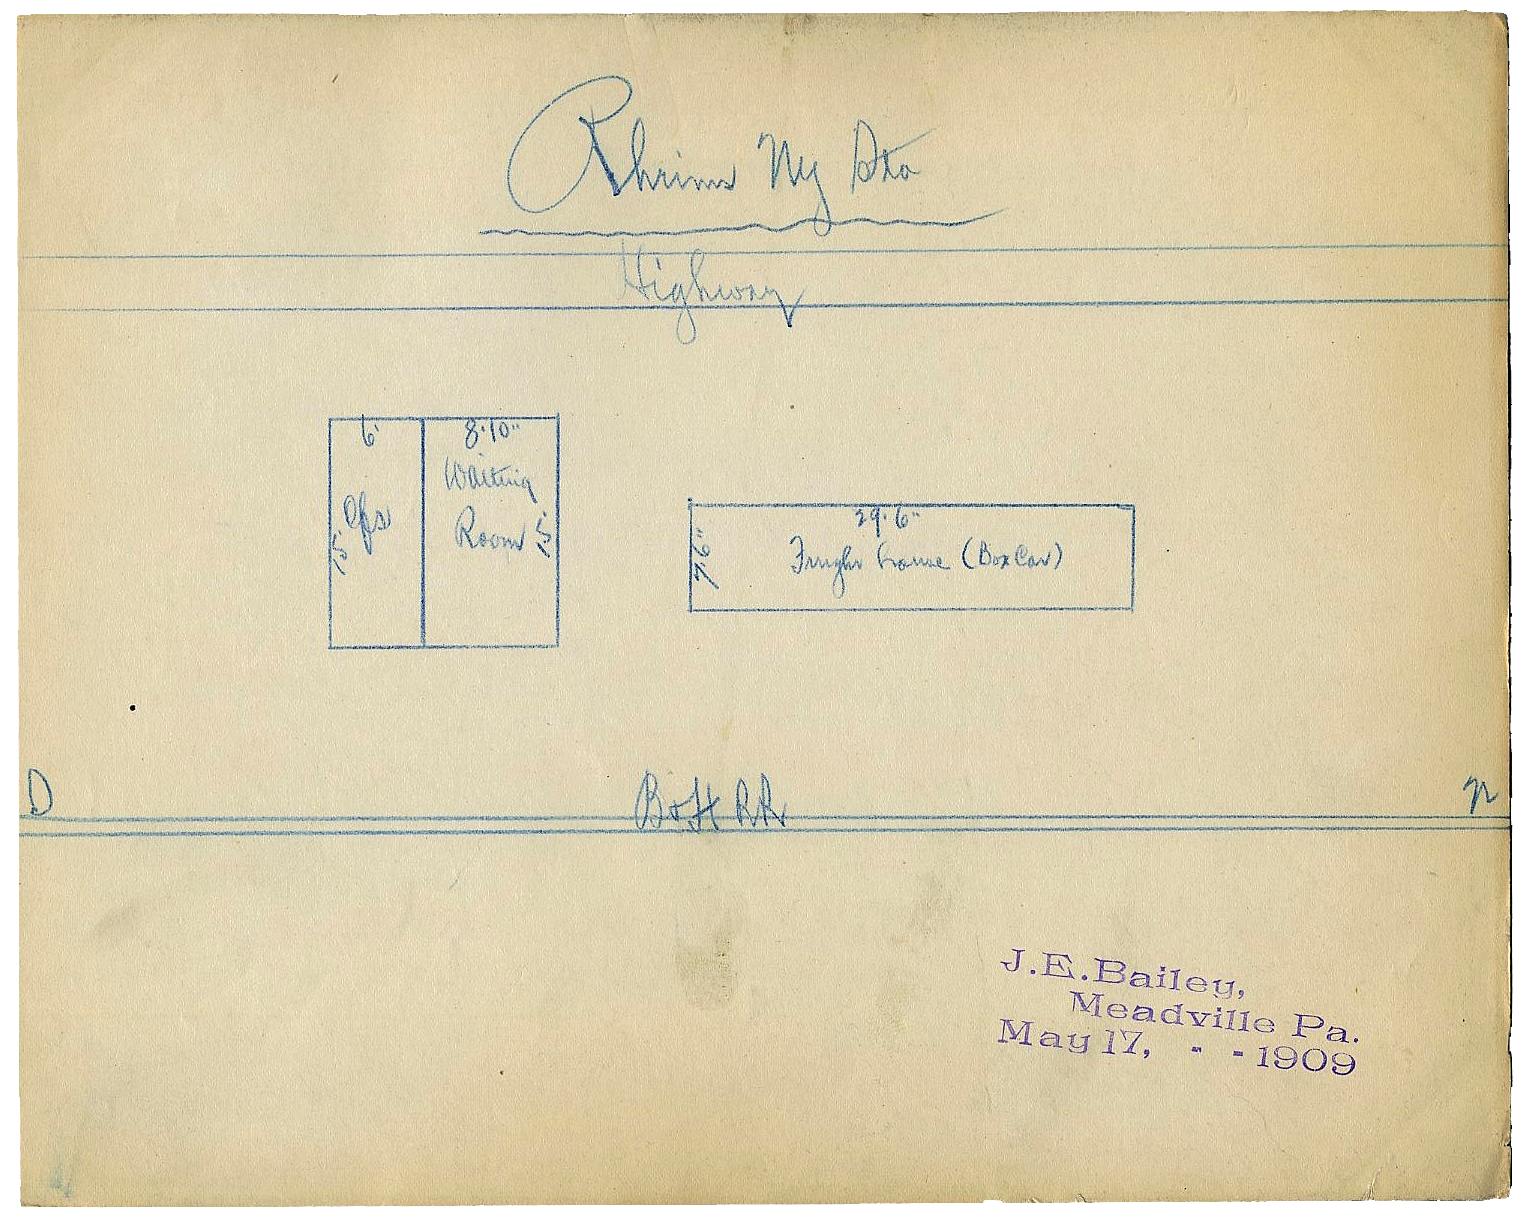 Rhrims Ny Sta
Highway
6'
8'10"
Ofs
Waiting
Room
15'
15'
29'6"
7'6"
Freight house (Box Car)
D
B&H RR
N
J.E.Bailey,
Meadville Pa.
May 17, - - 1909